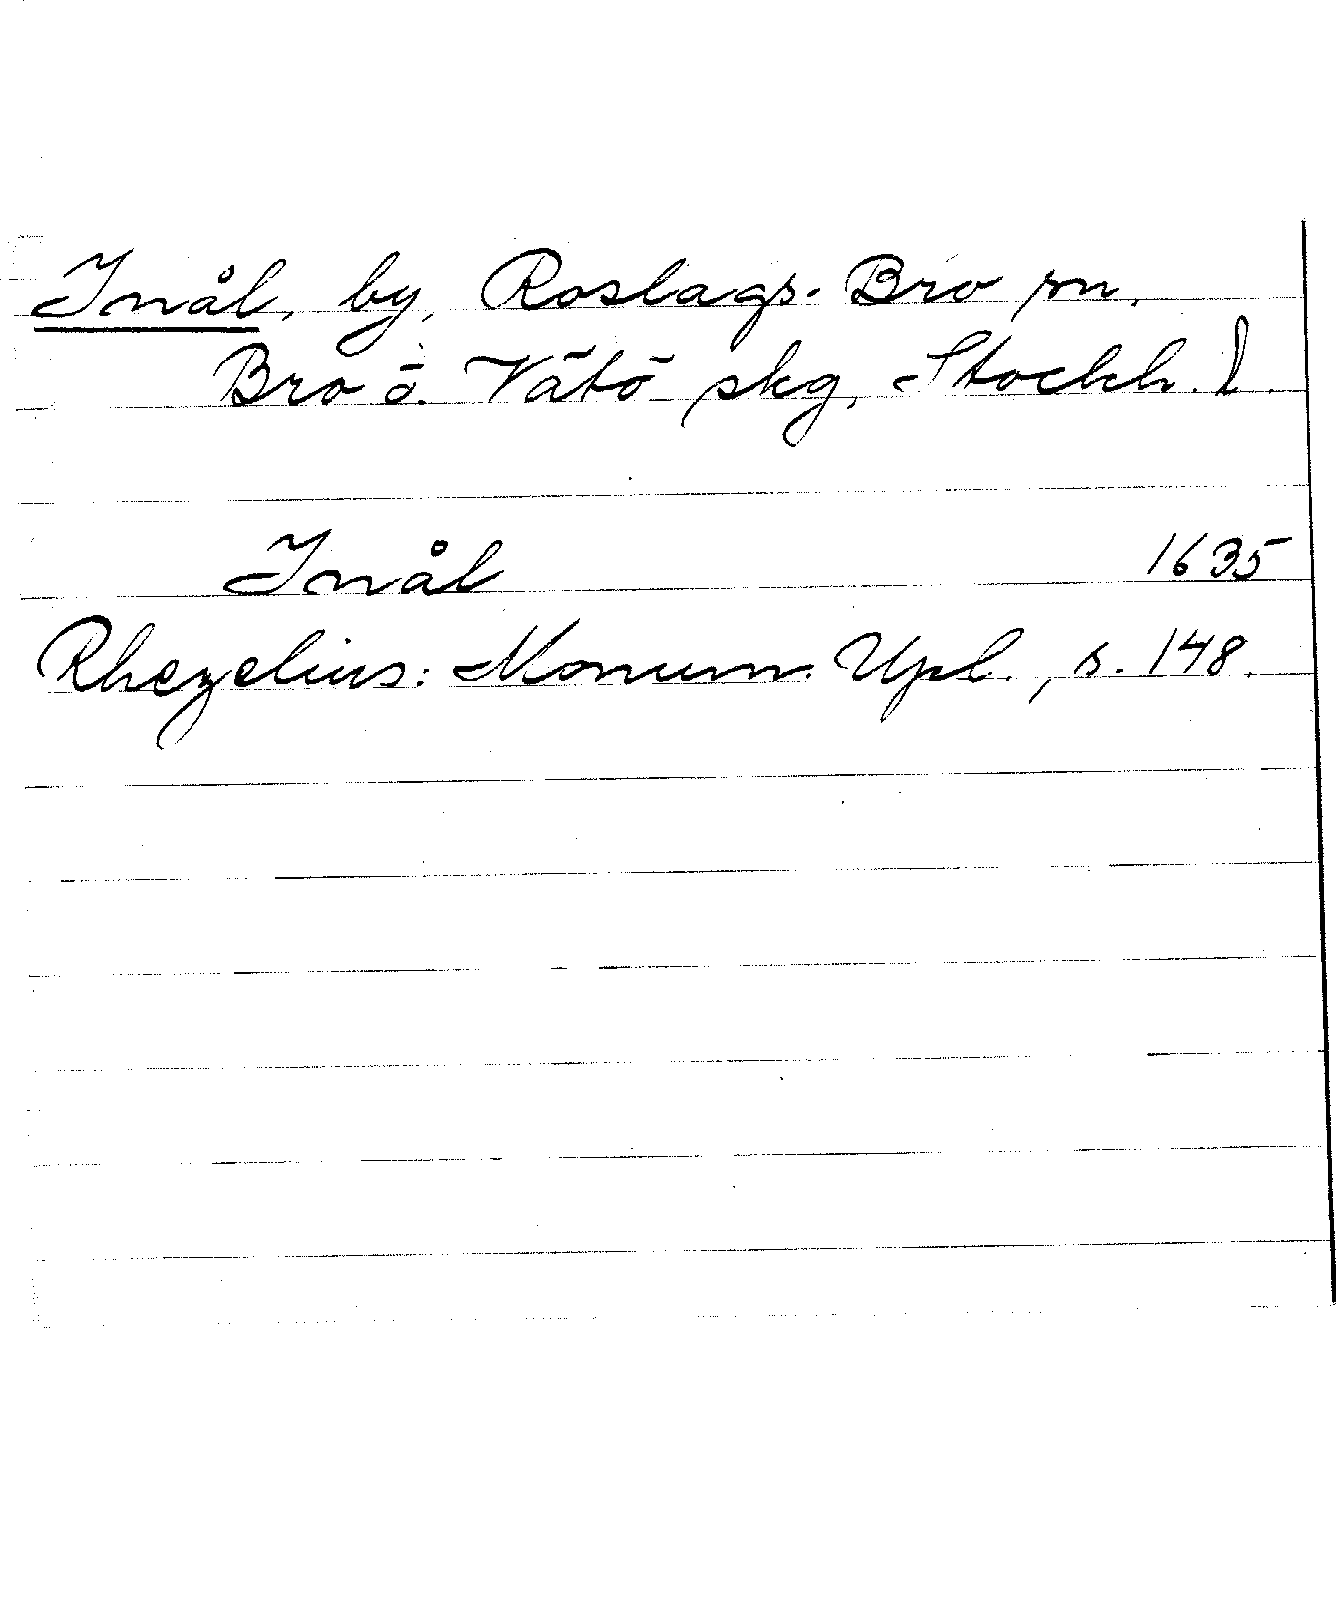 Inål, by, Roslags-Bro sn,
Bro o. Vätö skg, Stockh. l.
Inål 1635
Rhezelius: Monum. Upl., s. 148.